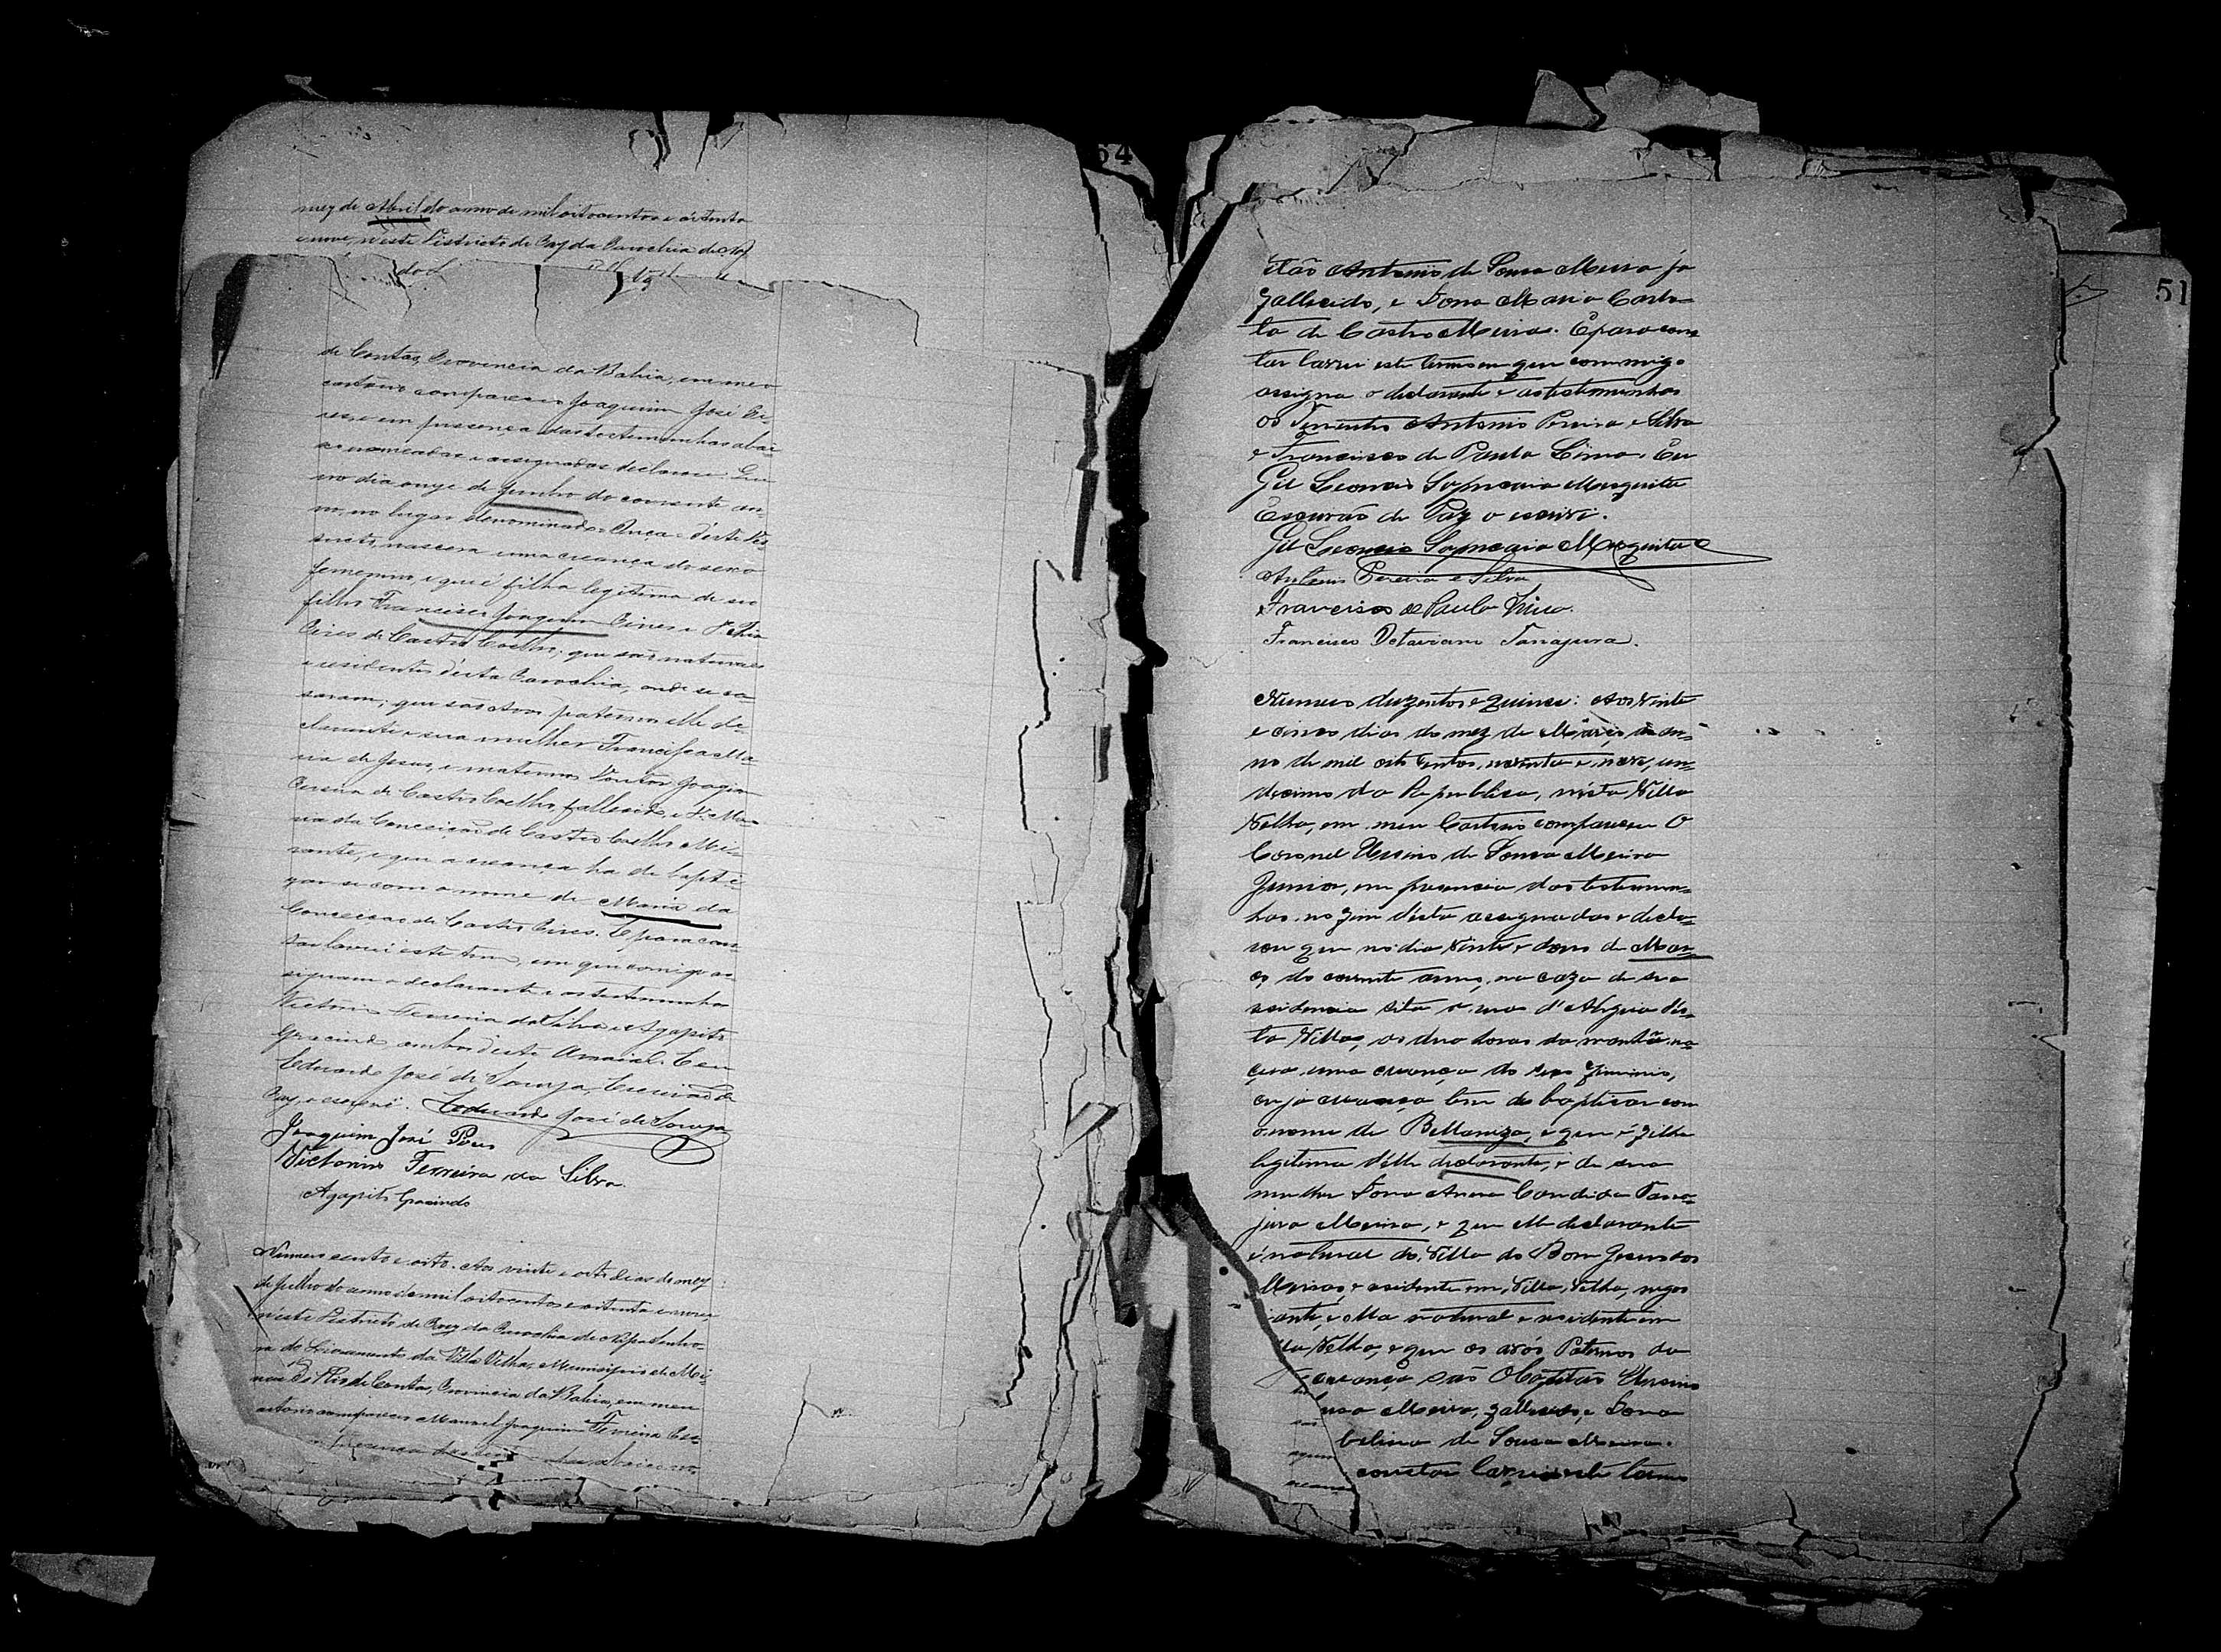 64
mez de Abril do anno de mil oitocentos e oitenta
e nove, n'este Districto de Paz da Parochia de
de Contas, Provincia da Bahia, em meo
cartorio compareceo Joaquim José Pi-
res, e em presença das testemunhas abai-
xo nomeadas e assignadas declarou: Que
no dia onze de Junho do corrente an-
no, no lugar denominado d'este Dis-
tricto, nascera uma creança do sexo
femenino, e que é filha legitima de seo
filho Francisco Joaquim Pires e D.
Pires de Castro Coelho, que são naturaes
e residentes d'esta Parochia, onde se ca-
saram; que são Avos paternos elle de-
clarante e sua mulher Francisca Ma-
ria de Jesus, e maternos Doutor
Pereira de Castro Coelho, fallecido e D. Ma-
ria da Conceição de Castro Coelho Mi-
rante, e que a creança ha de bapti-
zar-se com o nome de Maria da
Conceição de Castro Pires. E para cons-
tar lavrei este termo, em que comigo as-
signam o declarante e as testemunhas
Victorino Ferreira da Silva e Agapito
Gracindo, ambos d'este Arraial. Eu
Eduardo José de Souza, Escrivão de
Paz, o escrevi. Eduardo José de Souza
Joaquim José Pires
Victorino Ferreira da Silva.
Agapito Gracindo
Numero cento e oito. Aos vinte e oito dias do mez
de Julho do anno de mil oitocentos e oitenta e nove,
n'este Districto de Paz da Parochia de Nossa Senho-
ra do Livramento da Villa Velha, Municipio de Mi-
nas do Rio de Contas, Provincia da Bahia, em meu
cartorio compareceo Manoel Joaquim Ferreira
presença das
51
itão Antonio de Sousa Meira já
fallecido, e Dona Maria Carlo-
ta de Castro Meira. E para cons-
tar lavrei este termo em que commigo
assigna o declarante e as testemunhas
os Tenentes Antonio Pereira e Silva
e Francisco de Paula Lima. Eu
Gil Leoncio Mesquita
Escrivão de Paz o escrevi.
Gil Leoncio Mesquita
Antonio Pereira e Silva
Francisco de Paula Lima.
Francisco Octaviano Tanajura.
Numero duzentos e quinze: Aos vinte
e cinco dias do mez de Março do an-
no de mil oito centos, noventa e nove, un-
decimo da Republica, nésta Villa
Velha, em meu Cartorio compareceu O
Coronel Ursino de Sousa Meira
Junior, em presencia das testemu-
has no fim désta assignadas e decla-
rou que no dia vinte e dous de Mar-
ço do corrente anno, na caza de sua
residencia sita a rua d'Alegria dés-
ta Villa, as duas horas da manhã na-
ceu uma creança do sexo feminino,
cuja creança tem de baptisar com
o nome de Bellaniza, e que é filha
legitima d'élle declarante, e de sua
mulher Dona Anna Candida Tana-
jura Meira, e que elle declarante
é natural da Villa do Bom Jesus dos
Meiras, e residente em Villa Velha, negoc
iante, e ella natural e residente em
Velha, e que os avós Paternos da
creança são O Capitão Ursino
Meira, fallecido, e Dona
belina de Sousa Meira.
constar lavrei este termo